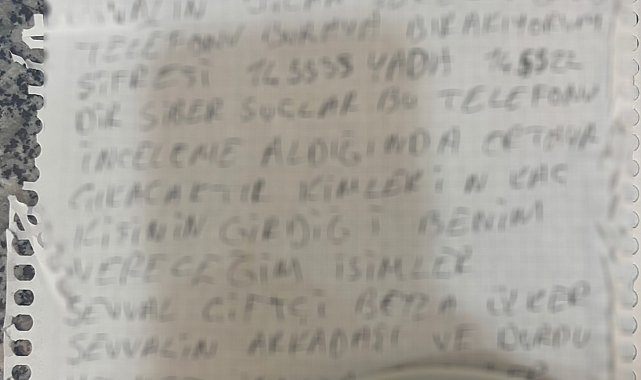 TELEFONU BURAYA BIRAKIYORUM
ŞİFRESİ 145555 YADA 145522
DIR SİBER SUÇLAR BU TELEFONU
İNCELEME ALDIĞINDA ORTAYA
ÇIKACAKTIR KİMLERİN KAÇ
KİŞİNİN GİRDİĞİ BENİM
VERECEĞİM İSİMLER
ŞEVVAL ÇİFTÇİ İLKER
ŞEVVALİN ARKADAŞI VE